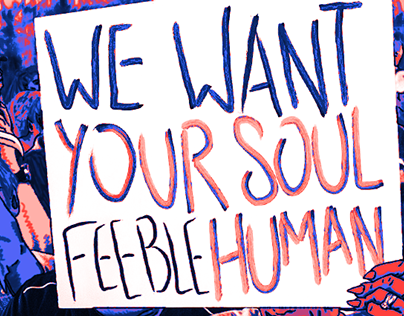 WE WANT
YOUR SOUL
FEEBLE HUMAN